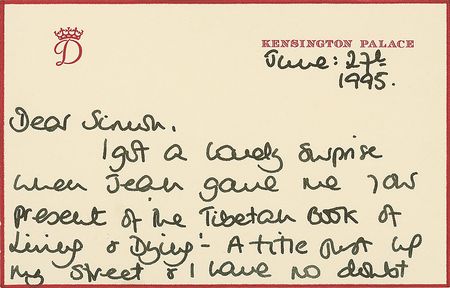 D
KENSINGTON PALACE
June: 27th
1995.
Dear Simon,
I got a lovely surprise
when Jean gave me your
present of the Tibetan Book of
Living & Dying - A title just up
my street & I have no doubt